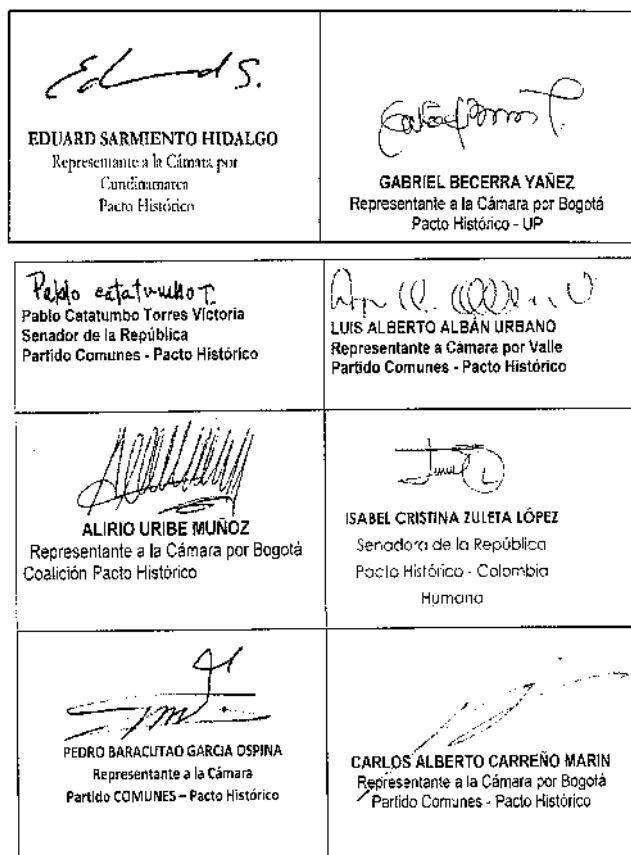 Eduard S.
EDUARD SARMIENTO HIDALGO
Representante a la Cámara por
Cundinamarca
Pacto Histórico
GABRIEL BECERRA YAÑEZ
Representante a la Cámara por Bogotá
Pacto Histórico - UP
Pablo catatumbo T.
Pablo Catatumbo Torres Victoria
Senador de la República
Partido Comunes - Pacto Histórico
LUIS ALBERTO ALBÁN URBANO
Representante a Cámara por Valle
Partido Comunes - Pacto Histórico
ALIRIO URIBE MUÑOZ
Representante a la Cámara por Bogotá
Coalición Pacto Histórico
ISABEL CRISTINA ZULETA LÓPEZ
Senadora de la República
Pacto Histórico - Colombia
Humana
PEDRO BARACUTAO GARCIA OSPINA
Representante a la Cámara
Partido COMUNES – Pacto Histórico
CARLOS ALBERTO CARREÑO MARIN
Representante a la Cámara por Bogotá
Partido Comunes - Pacto Histórico